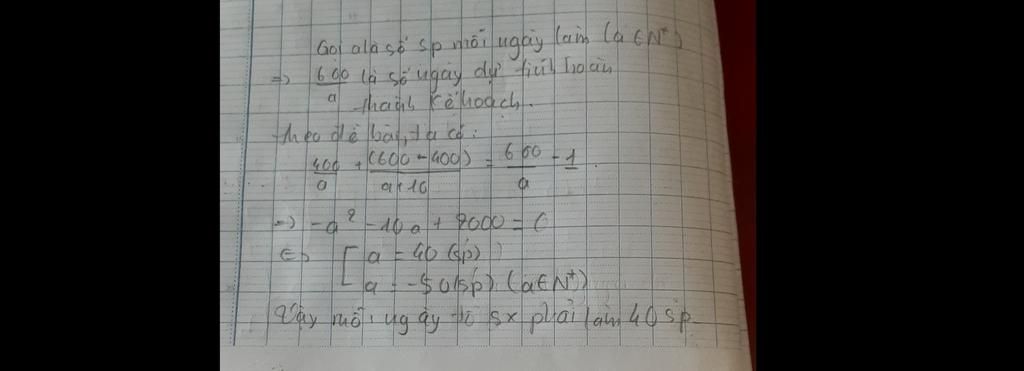 Gọi a là số sp mỗi ngày làm (a ∈ N*)
=> 600/a là số ngày dự tính hoàn
thành kế hoạch.
Theo đề bài, ta có:
400/a + (600-400)/(a+10) = 600/a - 1
=> -a² - 10a + 2000 = 0
<=> [ a = 40 (sp)
a = -50 (sp) (a ∈ N*)
Vậy mỗi ngày tổ sx phải làm 40 sp